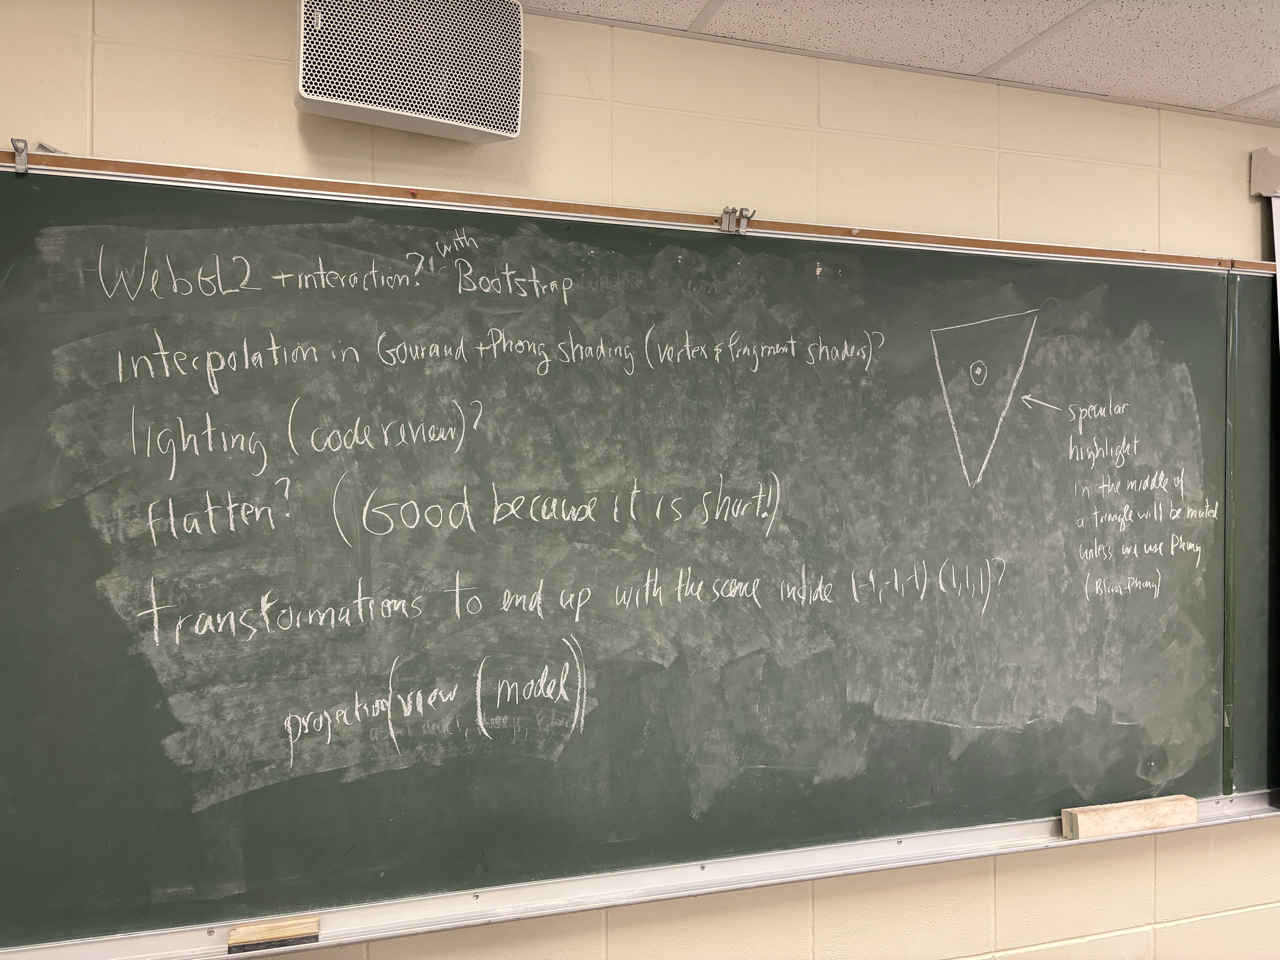 WebGL2 + interaction? with Bootstrap
Interpolation in Gouraud + Phong shading (vertex & fragment shaders)?
lighting (code review)?
flatten? (Good because it is short!)
transformations to end up with the scene inside (-1,-1,-1) (1,1,1)?
projection(view (model))
specular
highlight
in the middle of
a triangle will be muted
unless we use Phong
(Blinn-Phong)